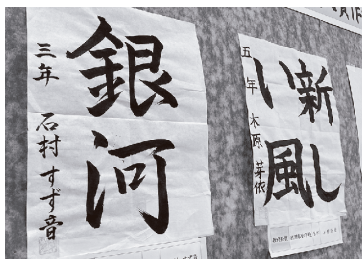 銀河
三年 石村すず音
新し
い風
五年 木原芽依